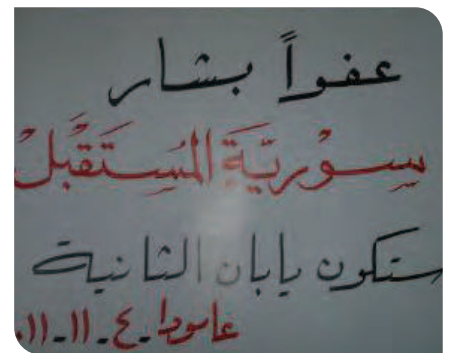 عفواً بشار
سِوْريّةِ المُستَقْبلْ
ستكون يابان الثانية
عامودا - ٤ - ١١ - ١١